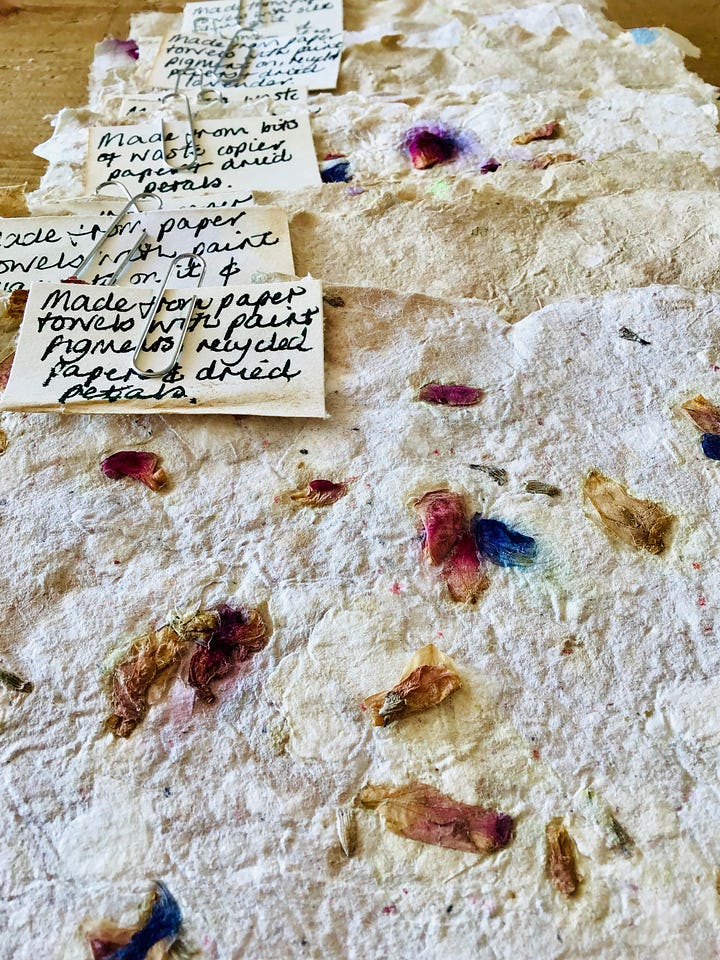 Made from
Made from paper
towels with paint
pigments on, recycled
paper & dried
lavender
waste
Made from bits
of waste copier
paper & dried
petals.
paper
towels with paint
on it &
Made from paper
towels with paint
pigments recycled
paper & dried
petals.